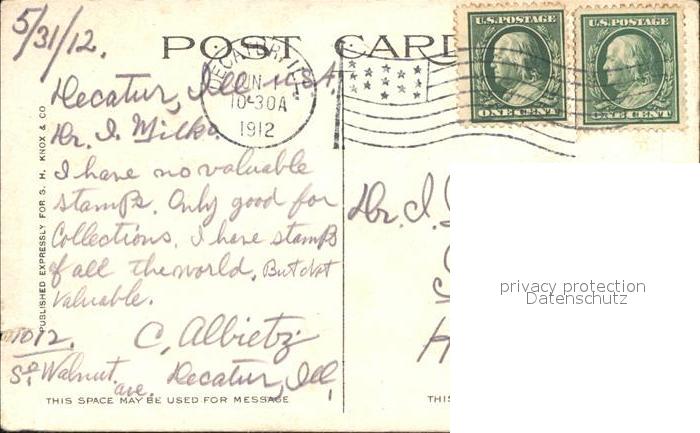 5/31/12.
POST CARD
U.S.POSTAGE
U.S.POSTAGE
ONE CENT
ONE CENT
DECATUR, ILL.
JUN 1
10-30A
1912
Decatur, Ill U.S.A.
Dr. I. Milko
I have no valuable
stamps. Only good for
Collections. I have stamps
of all the world. But not
Valuable.
C, Albietz
1012
So. Walnut ave. Decatur, Ill,
PUBLISHED EXPRESSLY FOR S. H. KNOX & CO
THIS SPACE MAY BE USED FOR MESSAGE
Dr. I.
H
THIS
privacy protection
Datenschutz